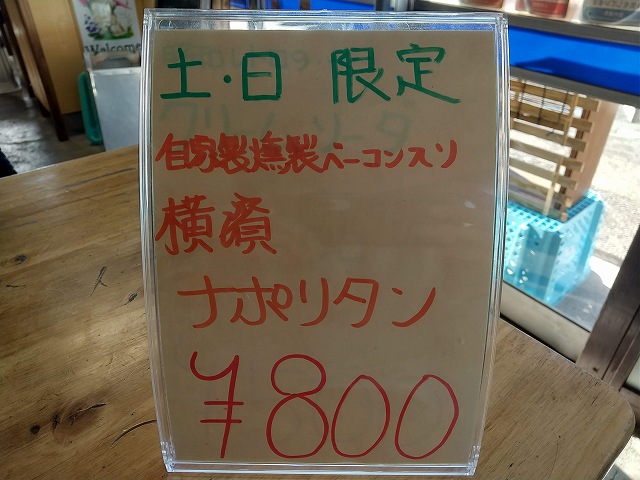 Welcome
土・日 限定
自家製燻製ベーコン入り
横濱
ナポリタン
¥800